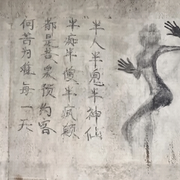 半人半鬼半神仙
半痴半傻半风颠
都是吾家预约客
何苦为难每一天